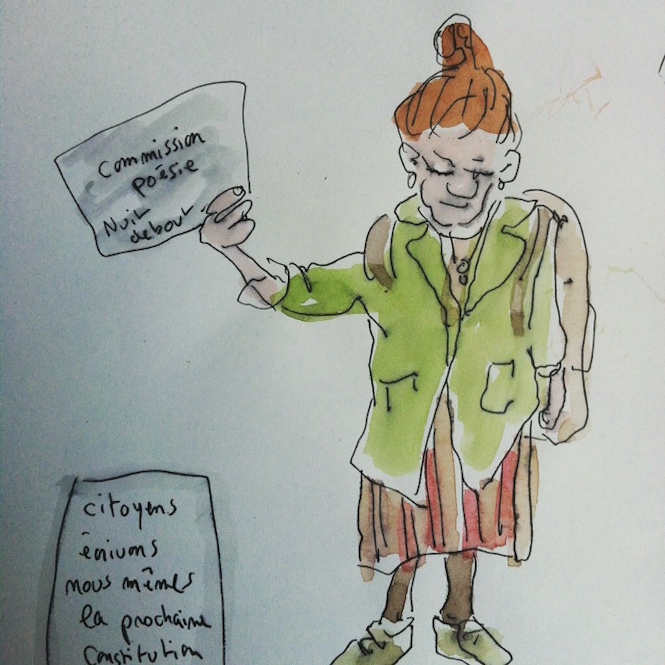 Commission
poésie
Nuit
debout
citoyens
écrivons
nous mêmes
la prochaine
Constitution